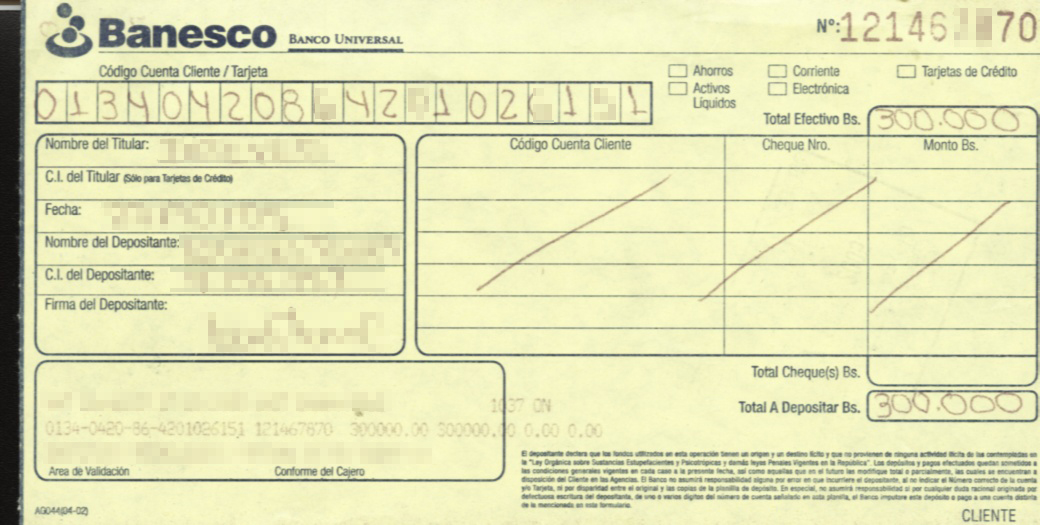 Banesco BANCO UNIVERSAL
Nº: 12146 70
Código Cuenta Cliente / Tarjeta
Ahorros Corriente Tarjetas de Crédito
Activos Líquidos Electrónica
0 1 3 4 0 4 2 0 8 4 2 1 0 2 1 1
Total Efectivo Bs. 300.000
Nombre del Titular:
C.I. del Titular (Sólo para Tarjetas de Crédito)
Fecha:
Nombre del Depositante:
C.I. del Depositante:
Firma del Depositante:
Código Cuenta Cliente Cheque Nro. Monto Bs.
Total Cheque(s) Bs.
Total A Depositar Bs. 300.000
1037 ON
0134-0420-86-4201026151 121467870 300000.00 300000.00 0.00 0.00
Area de Validación Conforme del Cajero
El depositante declara que los fondos utilizados en esta operación tienen un origen y un destino lícito y que no provienen de ninguna actividad ilícita de las contempladas en
la "Ley Orgánica sobre Sustancias Estupefacientes y Psicotrópicas y demás leyes Penales Vigentes en la República". Los depósitos y pagos efectuados quedan sometidos a
las condiciones generales vigentes en cada caso a la presente fecha, así como aquellas que en el futuro las modifique total o parcialmente, las cuales se encuentran a
disposición del Cliente en las Agencias. El Banco no asumirá responsabilidad alguna por error en que incurriere el depositante, al no indicar el Número correcto de la cuenta
y/o Tarjeta, ni por disparidad entre el original y las copias de la planilla de depósito. En especial, no asumirá responsabilidad si por cualquier duda racional originada por
defectuosa escritura del depositante, de uno o varios dígitos del número de cuenta señalado en esta planilla, el Banco imputare este depósito o pago a una cuenta distinta
de la mencionada en este formulario.
AG044(04-02)
CLIENTE